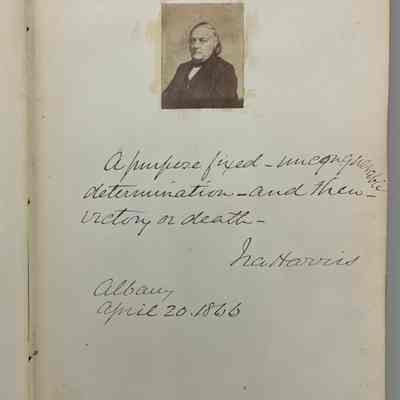 A purpose fixed – unconquerable
determination – and then –
victory or death –
Ira Harris
Albany
April 20. 1866